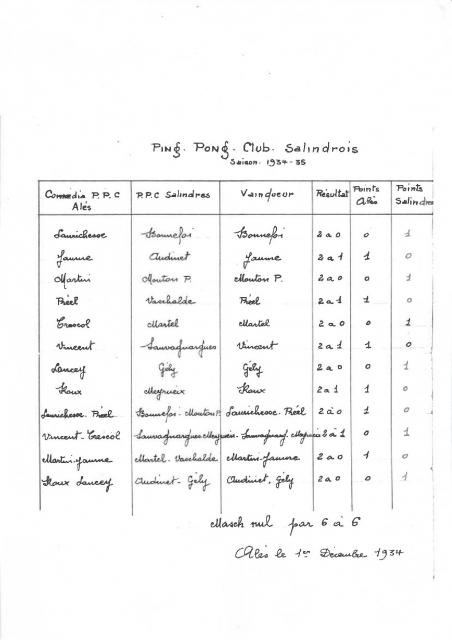 Ping. Pong. Club. Salindrois
Saison. 1934-35
Comœdia P.P.C Alès P.P.C Salindres Vainqueur Résultat Points Alès Points Salindres
Laurichesse Bonnefoi Bonnefoi 2 a 0 0 1
Jaume Audinet Jaume 2 a 1 1 0
Martin Mouton P. Mouton P. 2 a 0 0 1
Réel Vaschalde Réel 2 a 1 1 0
Crescol Martel Martel 2 a 0 0 1
Vincent Sauvaguargues Vincent 2 a 1 1 0
Lancey Gély Gély 2 a 0 0 1
Roux Meyrieix Roux 2 a 1 1 0
Laurichesse. Réel Bonnefoi - Mouton P. Laurichesse. Réel 2 à 0 1 0
Vincent - Crescol 2 à 1 0 1
Martin-Jaume Martel - Vaschalde Martin-Jaume 2 a 0 1 0
Roux Lancey Audinet - Gély Audinet, Gély 2 a 0 0 1
Match nul par 6 à 6
Alès le 1er Decembre 1934